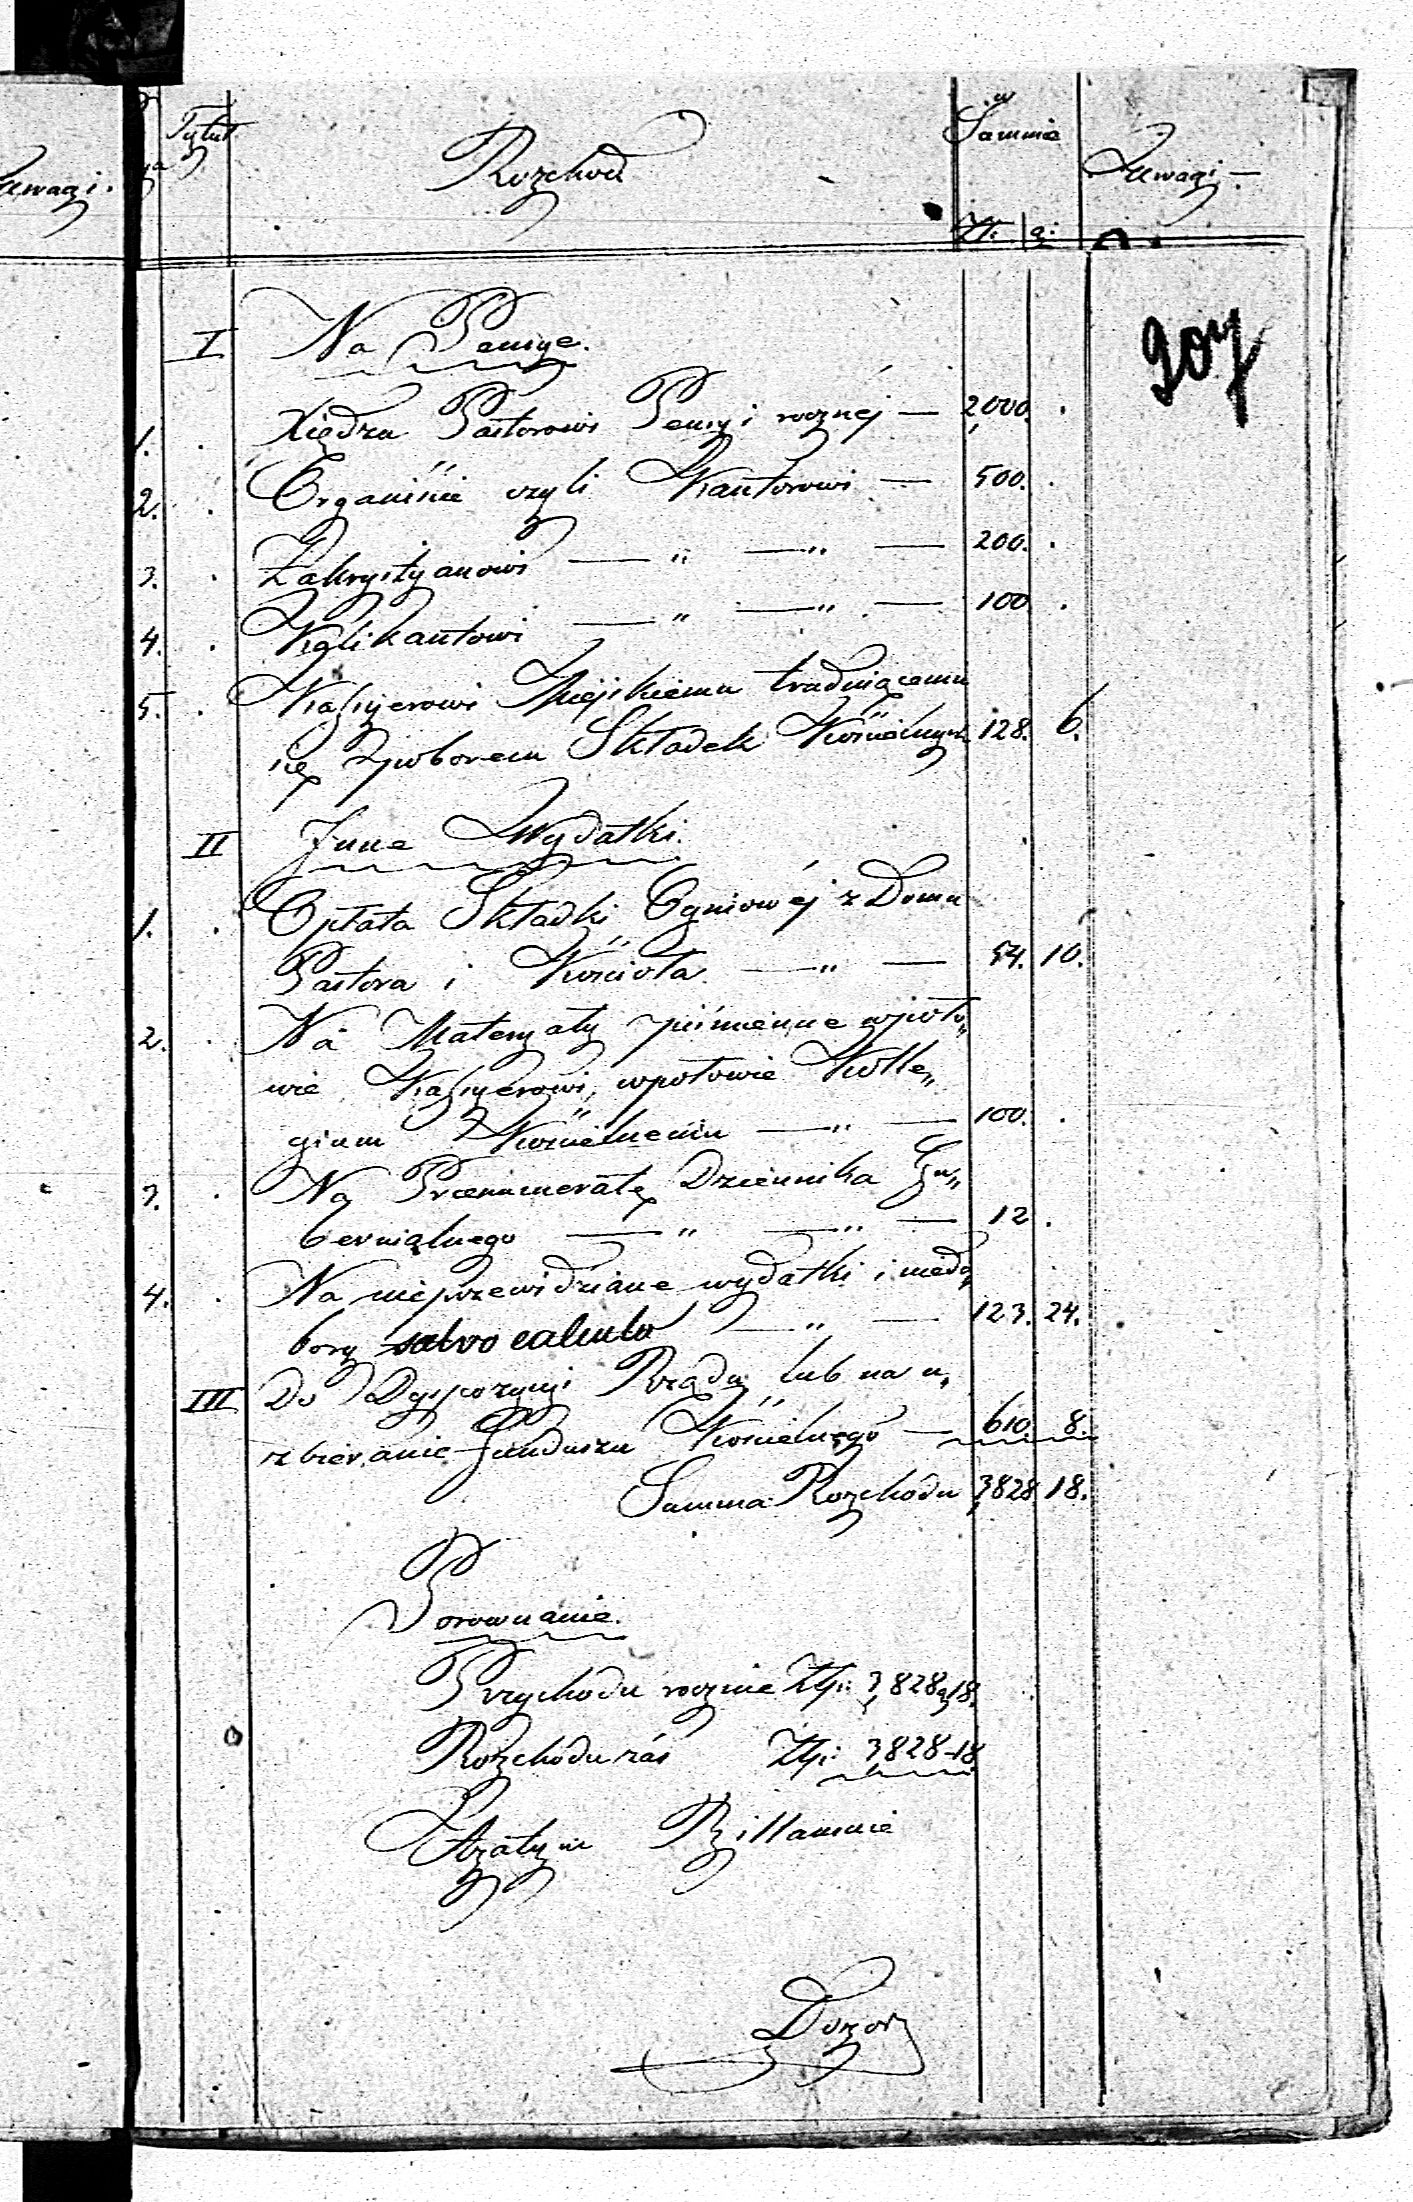 Uwagi.
Tytuł
Rozchod
w Summie
Uwagi
Zł. g:
207
I Na Pensye.
1. Xiędzu Pastorowi Pensyi rocznéj — 2,000.
2. Organiście czyli Kantorowi — 500.
3. Zakrystyanowi — " — " — 200.
4. Kalikantowi — " — " — 100
5. Kassyerowi Miejskiemu trudniącemu
się poborem Składek Kościelnych 128. 6.
II Inne Wydatki.
1. Opłata Składki Ogniowéj z Domu
Pastora i Kościoła — " — 54. 10.
2. Na Materyały piśmienne wpoło„
wie Kassyerowi, wpołowie Kolle„
gium Kościelnemu — " — 100.
3. Na Prenumeratę Dziennika Gu„
bernialnego — " — " — 12.
4. Na nieprzewidziane wydatki i niedo„
bory salvo calculo — " — 123. 24.
III Do Dyspozycyi Rządu lub na u„
zbieranie Funduszu Kościelnego — 610. 8.
Summa Rozchodu 3828 18.
Porownanie.
Przychodu rocznie Złp: 3,828 g 18.
Rozchodu zaś Złp: 3,828-18
Dozor